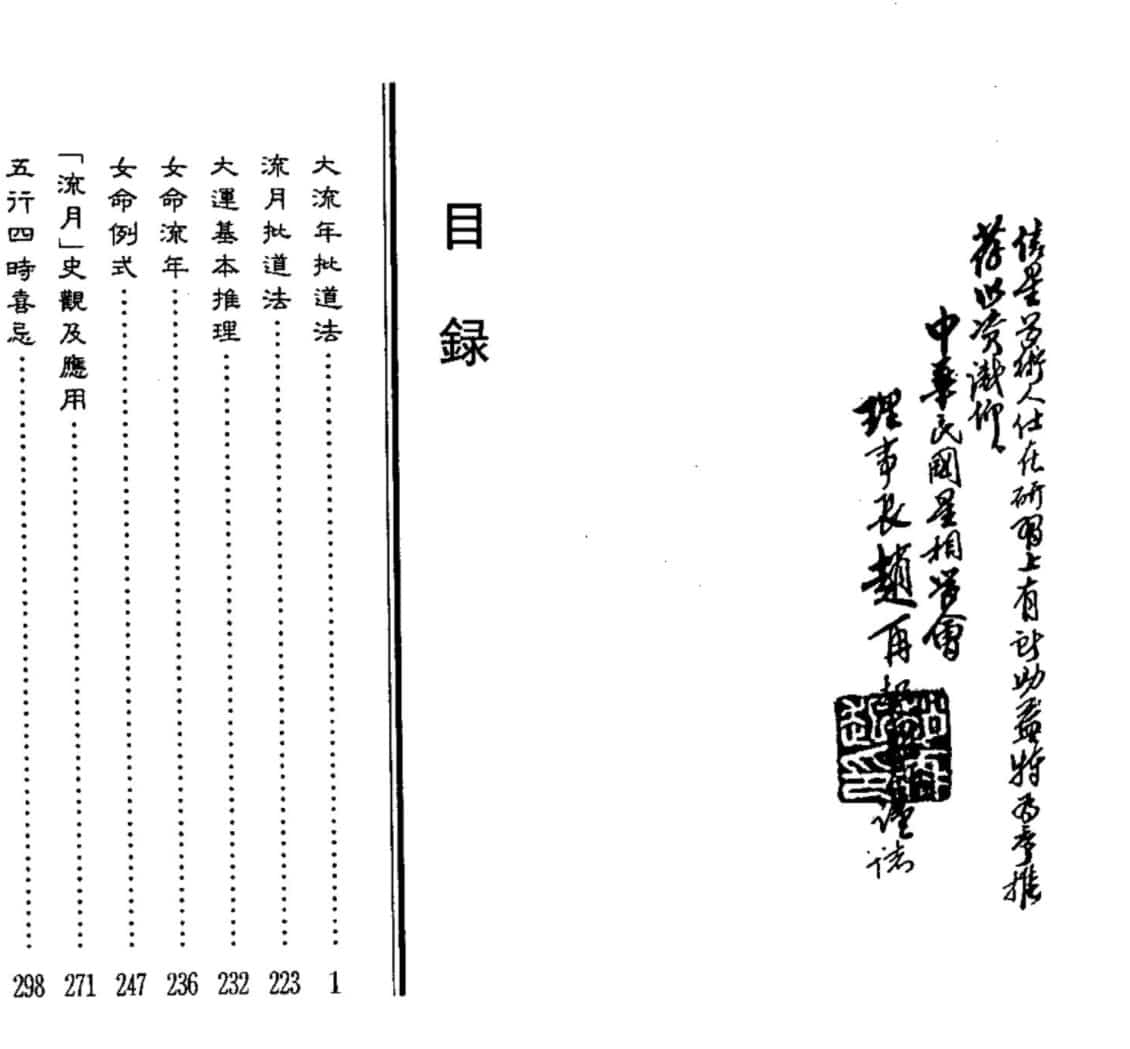 使星學術人仕在研習上有所助益特為奉推
荐以資識仰
中華民國星相學會
理事長趙再謹誌
目錄
大流年批道法 1
流月批道法 223
大運基本推理 232
女命流年 236
女命例式 247
「流月」史觀及應用 271
五行四時喜忌 298